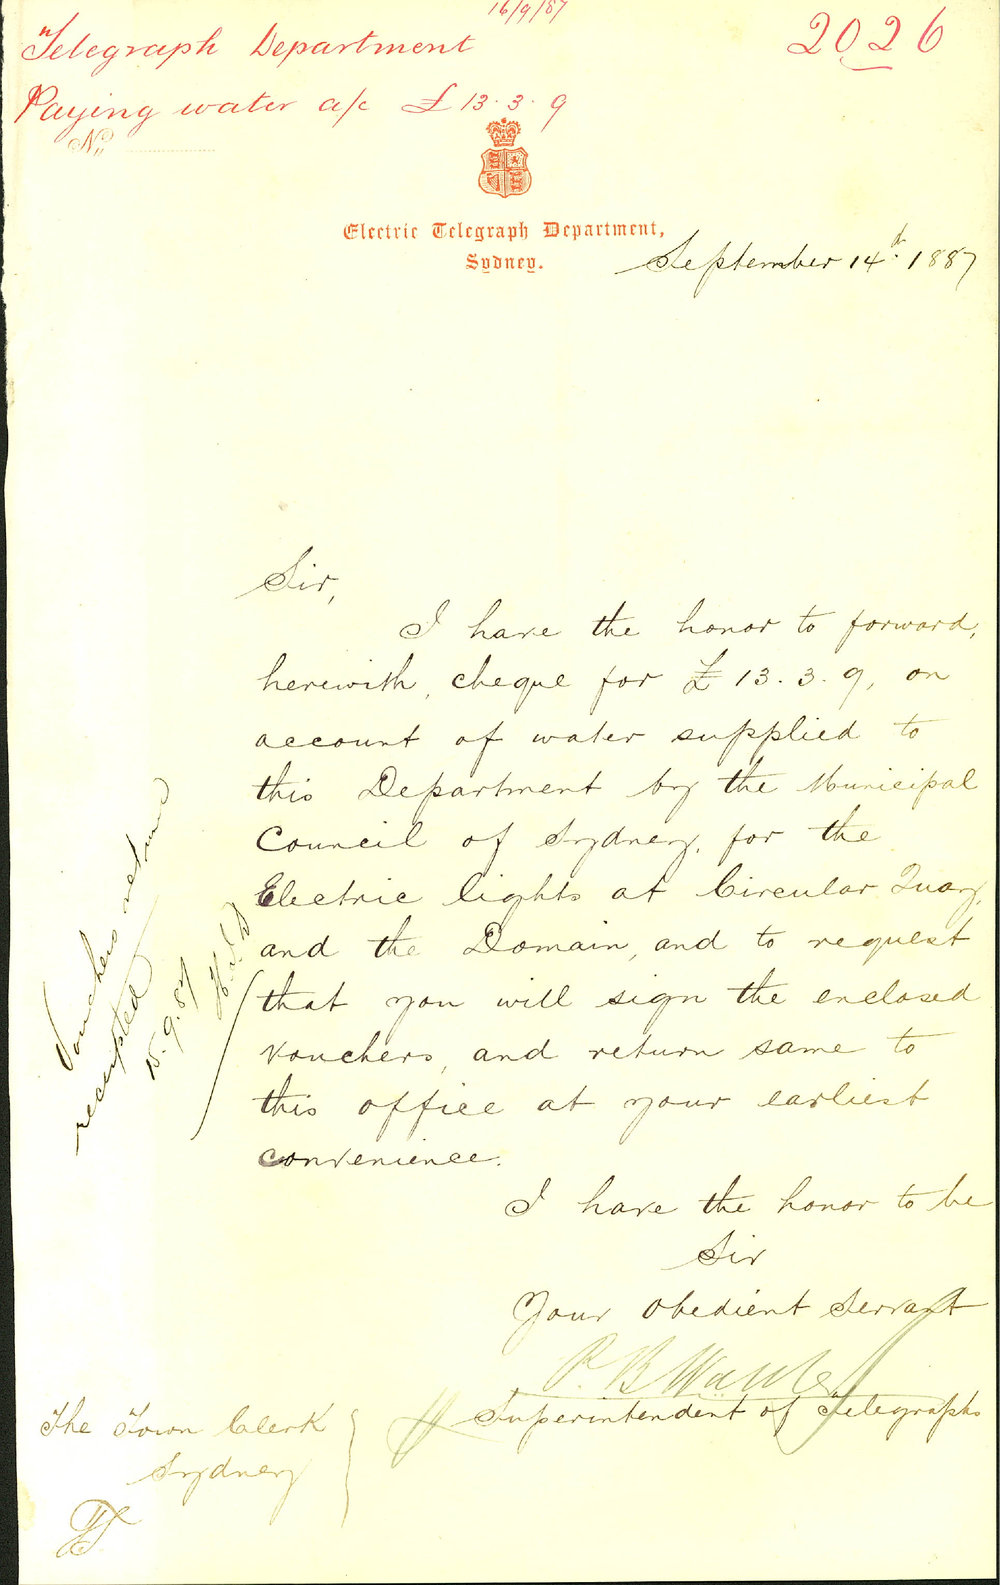 16/9/87
Telegraph Department
2026
Paying water a/c £13.3.9
No
Electric Telegraph Department,
Sydney.
September 14th. 1887
Sir,
I have the honor to forward,
herewith, cheque for £13.3.9, on
account of water supplied to
this Department by the Municipal
Council of Sydney, for the
Electric lights at Circular Quay,
and the Domain, and to request
that you will sign the enclosed
vouchers, and return same to
this office at your earliest
convenience.
I have the honor to be
Sir
Your Obedient Servant
P. B. Walker
Superintendent of Telegraphs
The Town Clerk
Sydney
Vouchers returned
receipted
15.9.87